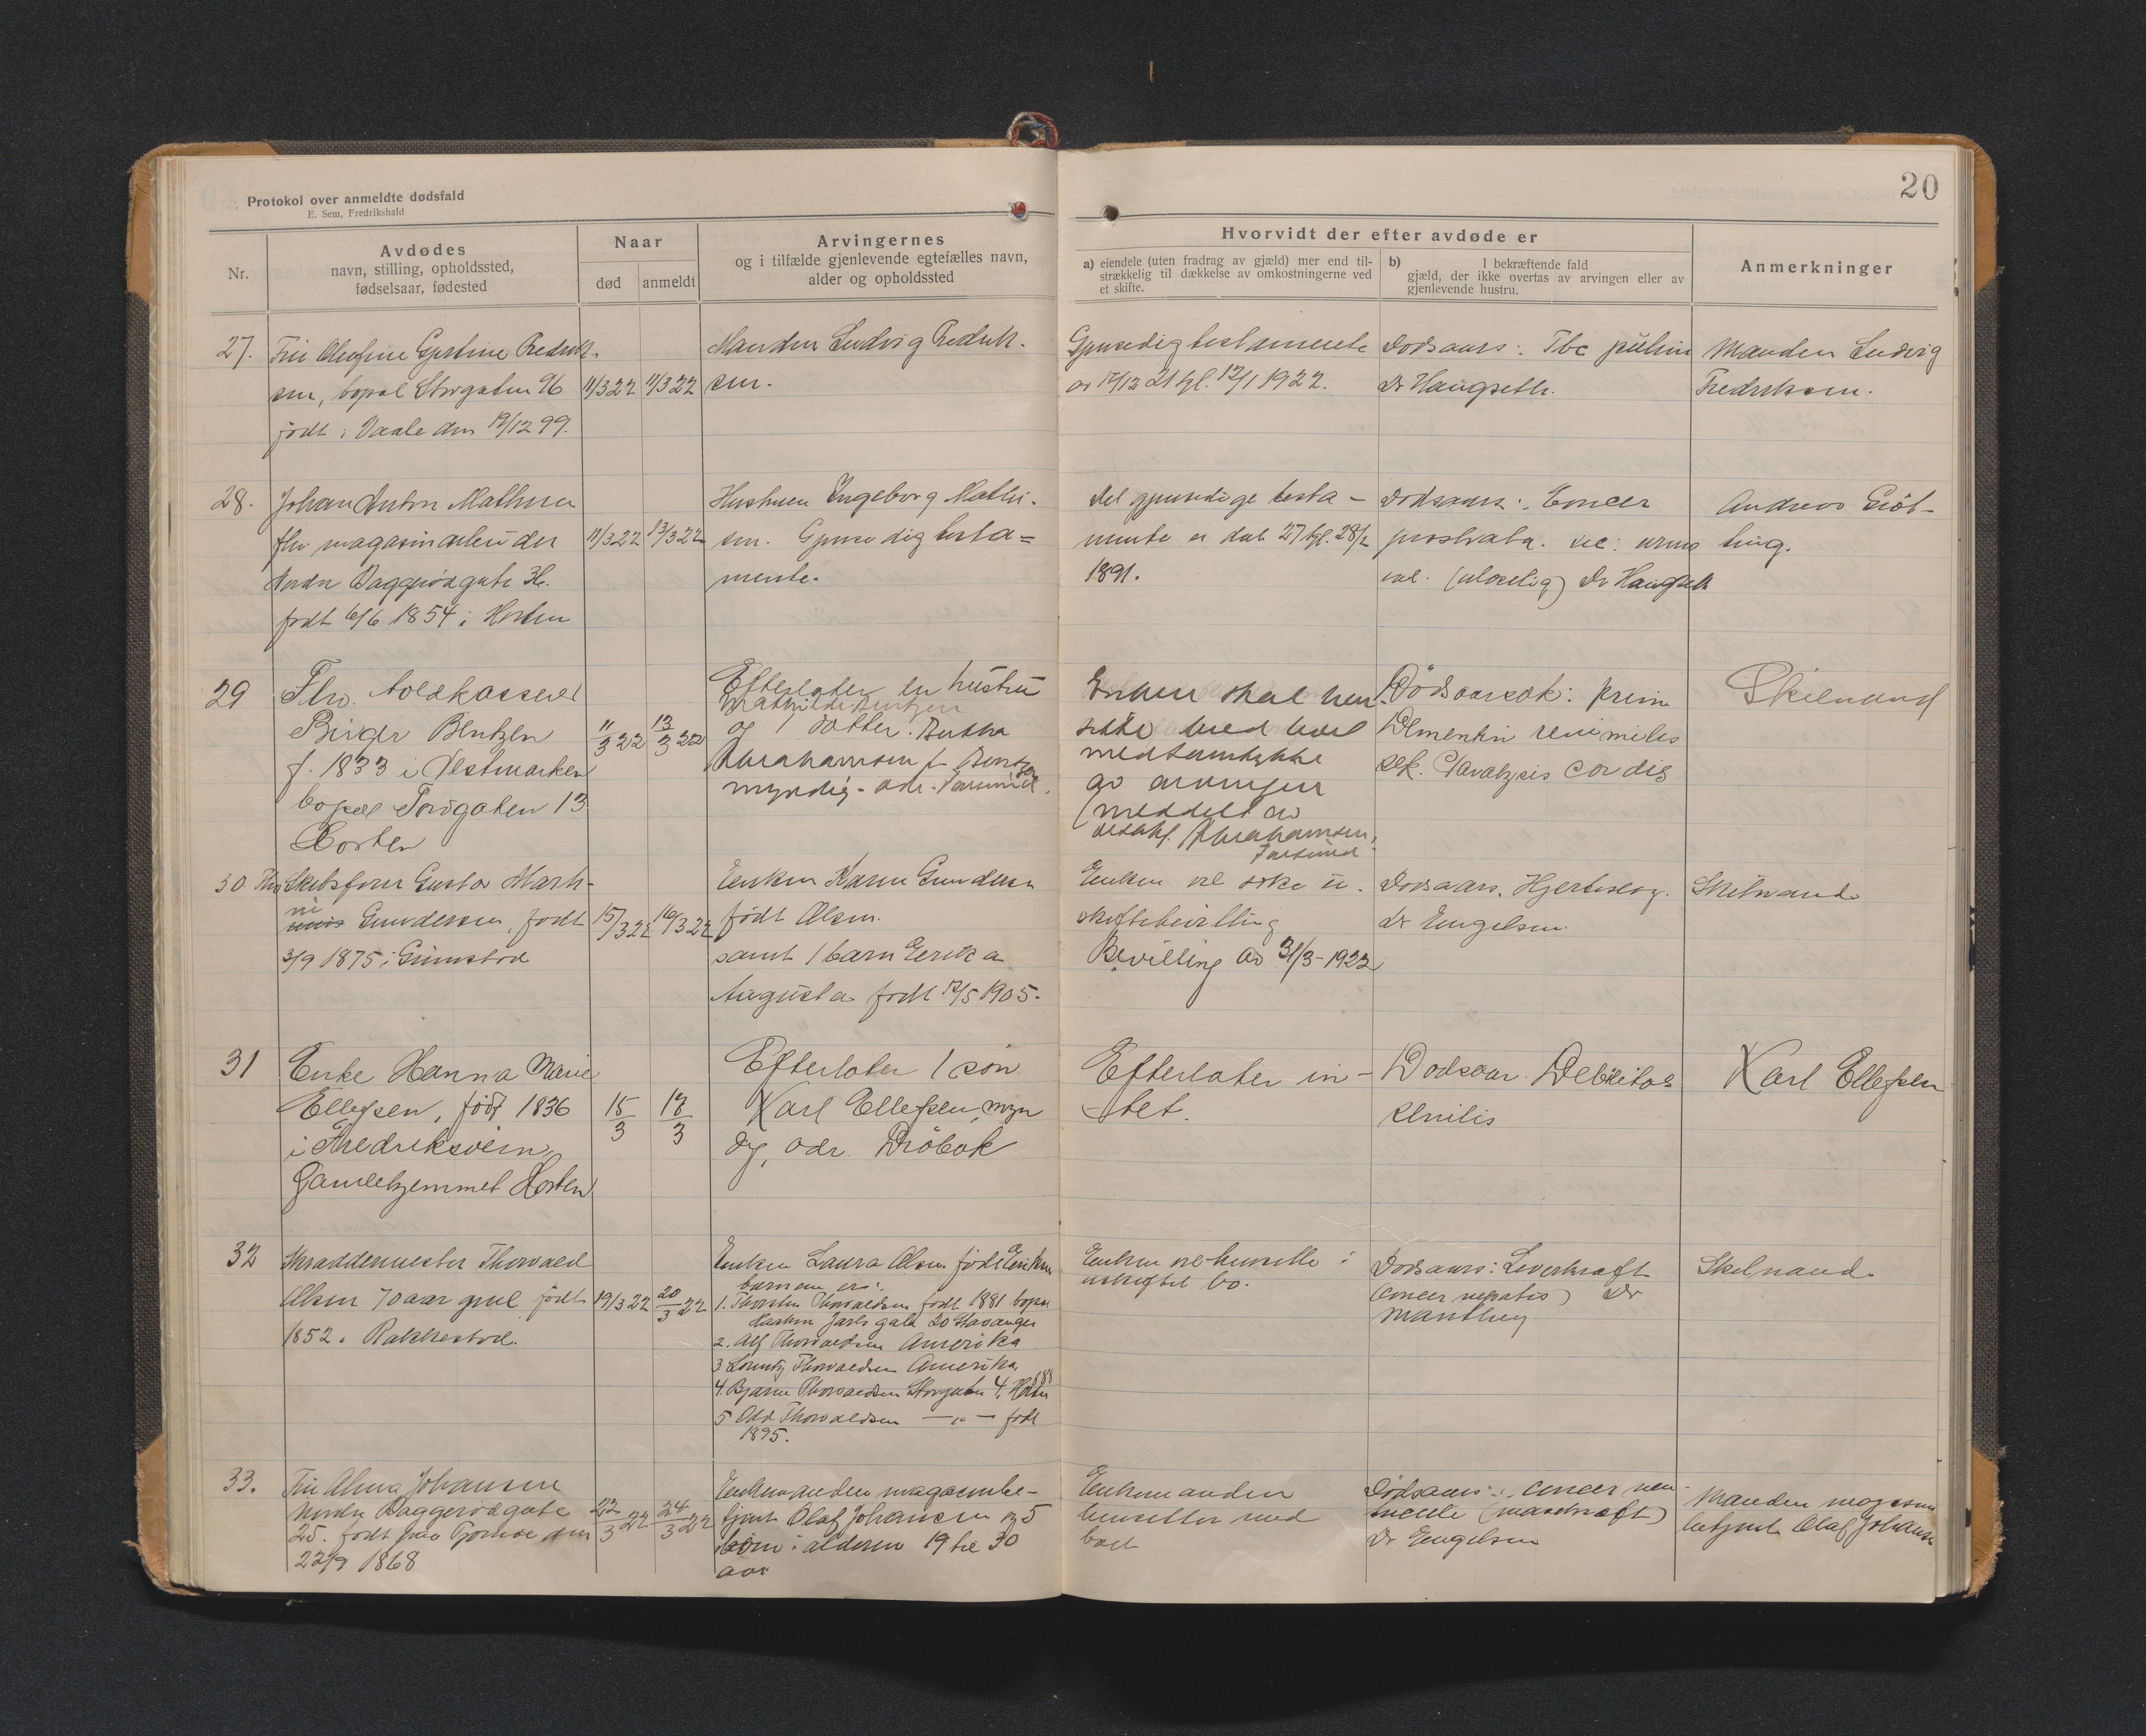 20
Protokol over anmeldte dødsfald
E. Sem, Fredrikshald
Nr.
Avdødes
navn, stilling, opholdssted,
fødselsaar, fødested
Naar
død
anmeldt
Arvingernes
og i tilfælde gjenlevende egtefælles navn,
alder og opholdssted
Hvorvidt der efter avdøde er
a) eiendele (uten fradrag av gjæld) mer end til-
strækkelig til dækkelse av omkostningerne ved
et skifte.
b) I bekræftende fald
gjæld, der ikke overtas av arvingen eller av
gjenlevende hustru.
Anmerkninger
27.
Gjertine Fredrik-
sen, bopæl Storgaten 96
født i Vaale den 19/12 99.
11/3 22
11/3 22
Manden Ludvig Fredrik-
sen.
Gjensedig testamente
av 12/12 21 tgl. 12/1 1922.
Dødsaars: Tbc pulm
Dr Haugseth.
Manden Ludvig
Fredriksen.
28.
Johan Anton Mathisen
fhv magasinarbeider
Nordre Baggerødgate 36.
født 6/6 1854 i Horten
11/3 22
13/3 22
Hustruen Ingeborg Mathi-
sen. Gjensedig testa=
mente.
Det gjensedige testa-
mente er dat 27 tgl. 28/2
1891.
Dødsaars: Cancer
prostrata.
Dr Haugseth
Andreas Grøt-
ting.
29
Fhv. toldkasserer
Birger Bentzen
f. 1833 i Vestmarken
bopæl Torvgaten 13
Horten
11/3 22
13/3 22
Efterlater en hustru
Mathilde Bentzen
og 1 datter. Bertha
Abrahamsen f. Bentzen
myndig - adr. Farsund.
Enken skal hen-
sitte med boet
med samtykke
av arvingen
(meddelt av
Abrahamsen,
Farsund
Dødsaarsak: prim
Dementia senilis
sek. Paralysis cordis
Skilnand
30
Fhv Skibsfører Gustav Marti-
ni Gundersen, født
3/9 1875 i Grimstad
15/3 22
16/3 22
Enken Karen Gundersen
født Olsen.
samt 1 barn Gerda
Augusta født 12/5 1905.
Enken vil søke u-
skiftebevilling
Bevilling av 31/3-1922
Dødsaars. Hjerteslag.
dr Engelsen.
Skilnand
31
Enke Hanna Marie
Ellefsen, født 1836
i Fredriksvern,
Gamlehjemmet Horten
15/3
17/3
Efterlater 1 søn
Karl Ellefsen, myn
dig, adr. Drøbak
Efterlater in-
-tet.
Dødsaar. Debilitas
senilis
Karl Ellefsen
32
Skræddermester Thorvald
Olsen 70 aar gml født
1852 i Rakkestad.
19/3 22
20/3 22
Enken Laura Olsen født Eriksen
barnene er:
1. Thorstein Thorvaldsen født 1881 bopæl
Haakon Jarls gate 20 Stavanger
2. Alf Thorvaldsen Amerika
3 Lorentz Thorvaldsen Amerika,
4. Bjarne Thorvaldsen Storgaten 4. Horten
5 Odd Thorvaldsen — „ — født
1895.
Enken vil hensitte i
uskiftet bo.
Dødsaars: Leverkræft
(cancer hepatis) Dr
Manthey
Skilnand
33.
Fru Alma Johansen
Nordre Baggerødgate
25. født paa den
22/9 1868
22/3 22
24/3 22
Enkemanden magasinbe-
tjent Olaf Johansen og 5
børn i alderen 19 til 30
aar
Enkemanden
hensitter med
boet
Dødsaars: cancer ven-
triculi (mavekræft)
Dr Engelsen
Manden magasin
betjent Olaf Johansen